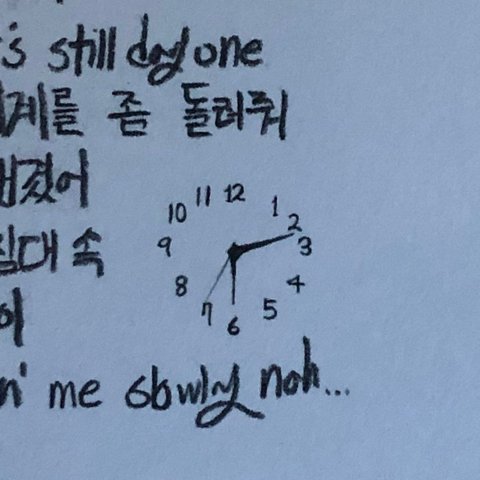 's still day one
계를 좀 돌려줘
졌어
11 12 1
10 2
9 3
침대 속
8 4
7 6 5
이
me slowly noh...